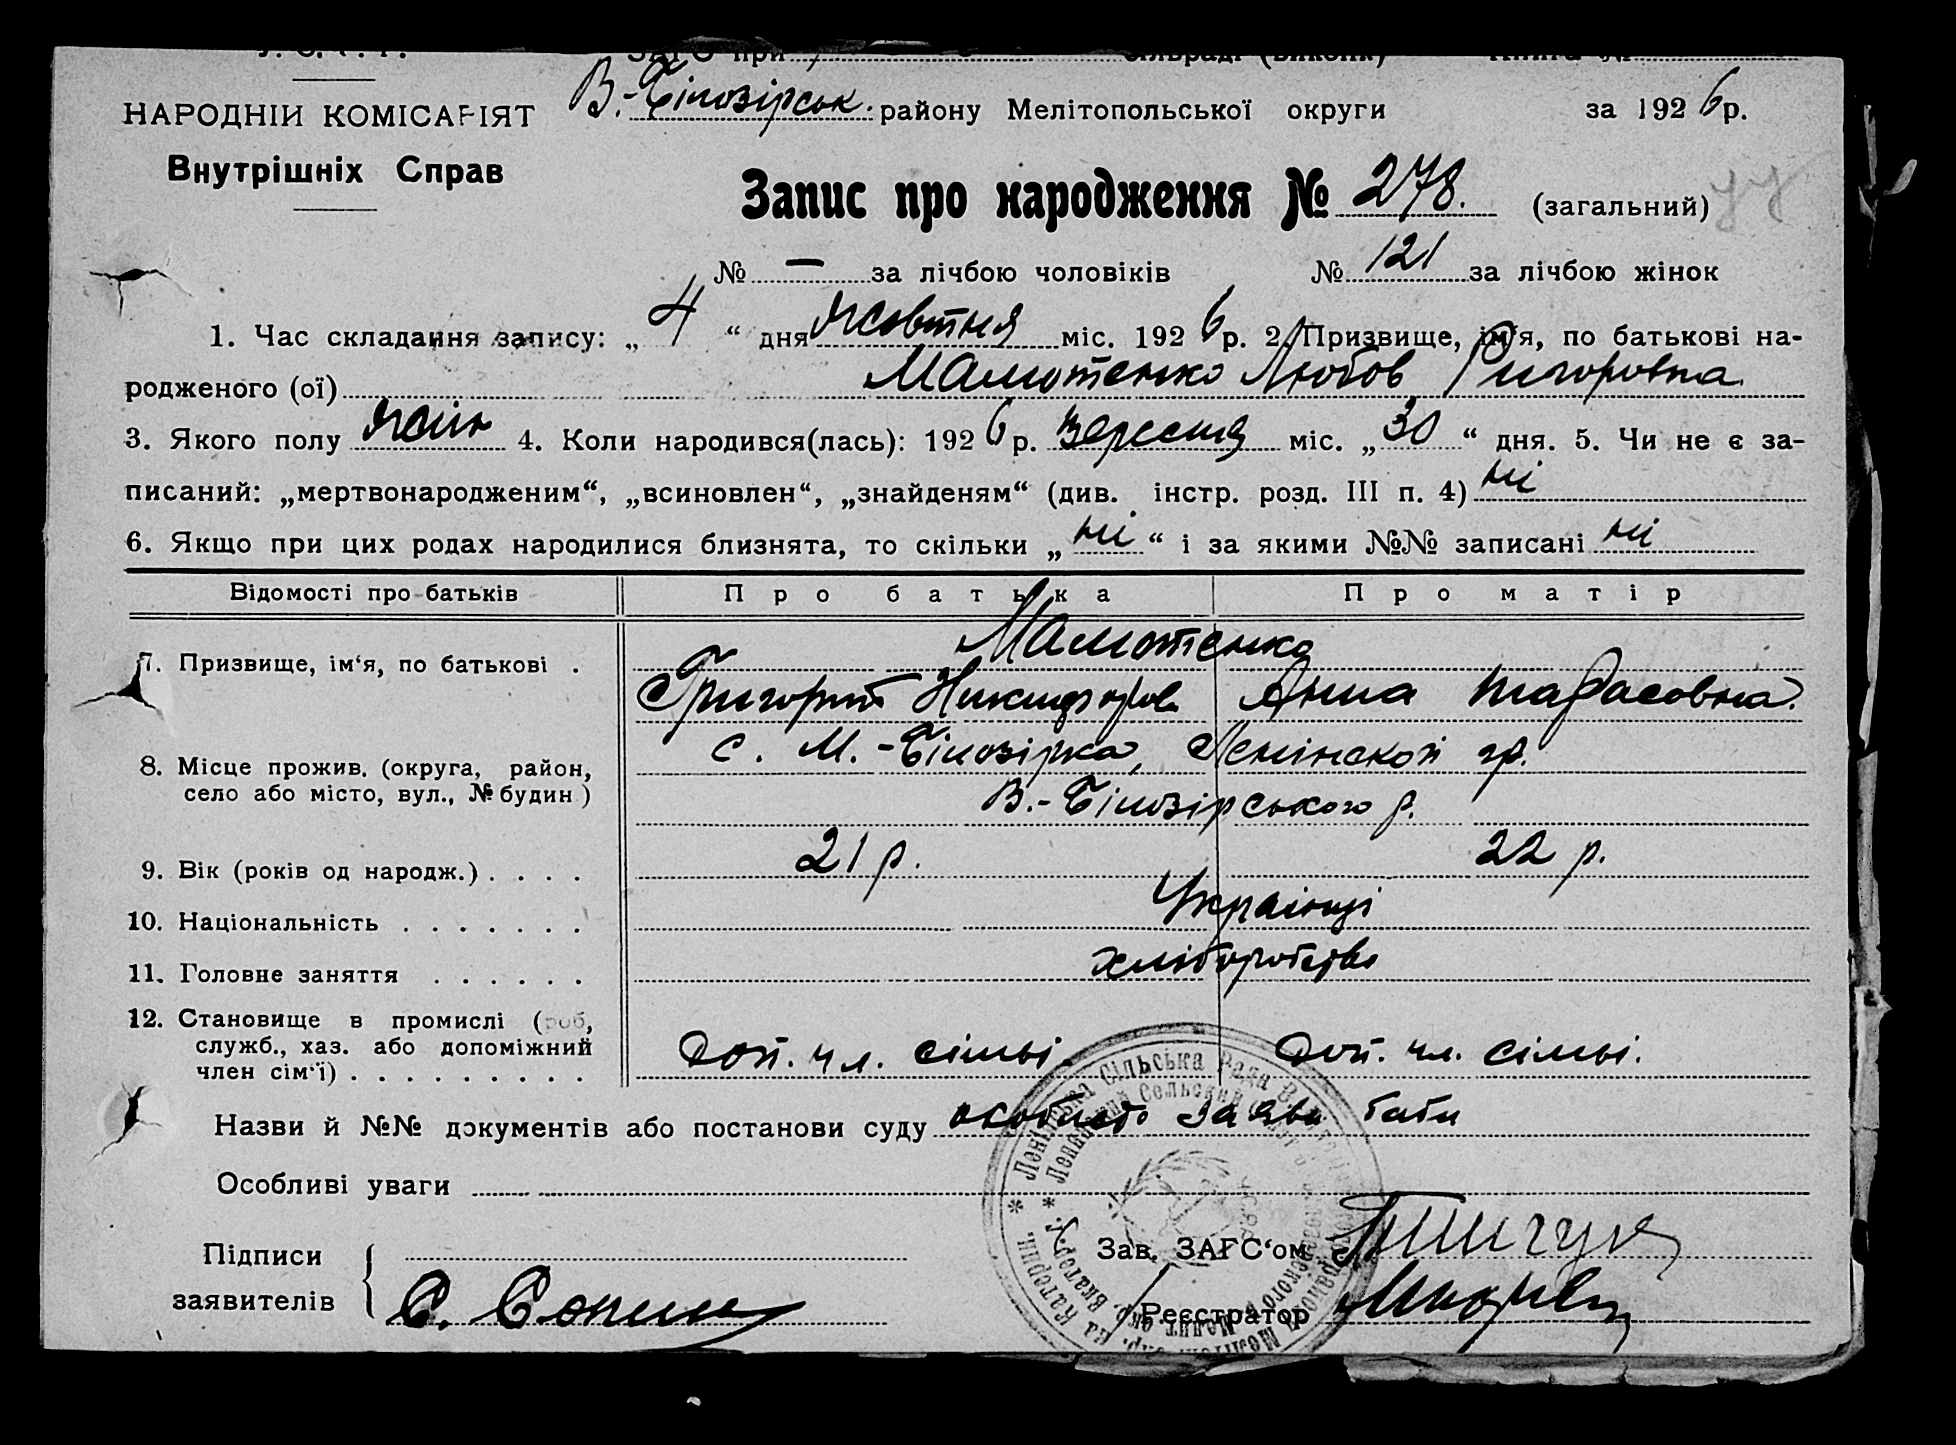 У. С. Р. Р. ЗАГС при сільраді (виконк) Книга №
НАРОДНІЙ КОМІСАРІЯТ В.-Білозірськ. району Мелітопольської округи за 1926 р.
Внутрішніх Справ
Запис про народження № 278. (загальний)
№ — за лічбою чоловіків № 121 за лічбою жінок
1. Час складання запису: „ 4 “ дня жовтня міс. 1926 р. 2. Призвище, ім'я, по батькові на-
родженого (ої) Мамотенко Любов Григоровна
3. Якого полу жін 4. Коли народився(лась): 1926 р. вересня міс. „30“ дня. 5. Чи не є за-
писаний: „мертвонародженим“, „всиновлен“, „знайденям“ (див. інстр. розд. III п. 4) ні
6. Якщо при цих родах народилися близнята, то скільки „ ні “ і за якими №№ записані ні
Відомості про батьків Про батька Про матір
Мамотенко
7. Призвище, ім'я, по батькові .
Григорій Никифоров Анна Тарасовна
с. М.-Білозірка, Ленінской гр.
8. Місце прожив. (округа, район,
село або місто, вул., № будин)
В.-Білозірського р.
9. Вік (років од народж.) . . . . 21 р. 22 р.
10. Національність . . . . . . . Українці
11. Головне заняття . . . . . . хліборобство
12. Становище в промислі (роб,
служб., хаз. або допоміжний
член сім'ї) . . . . . . . . . Доп. чл. сімьі Доп. чл. сімьі.
Назви й №№ документів або постанови суду особисто заява баби
Особливі уваги
Підписи
заявителів
Зав. ЗАГС'ом
Реєстратор
Ленінська Сільська Рада
Сельский